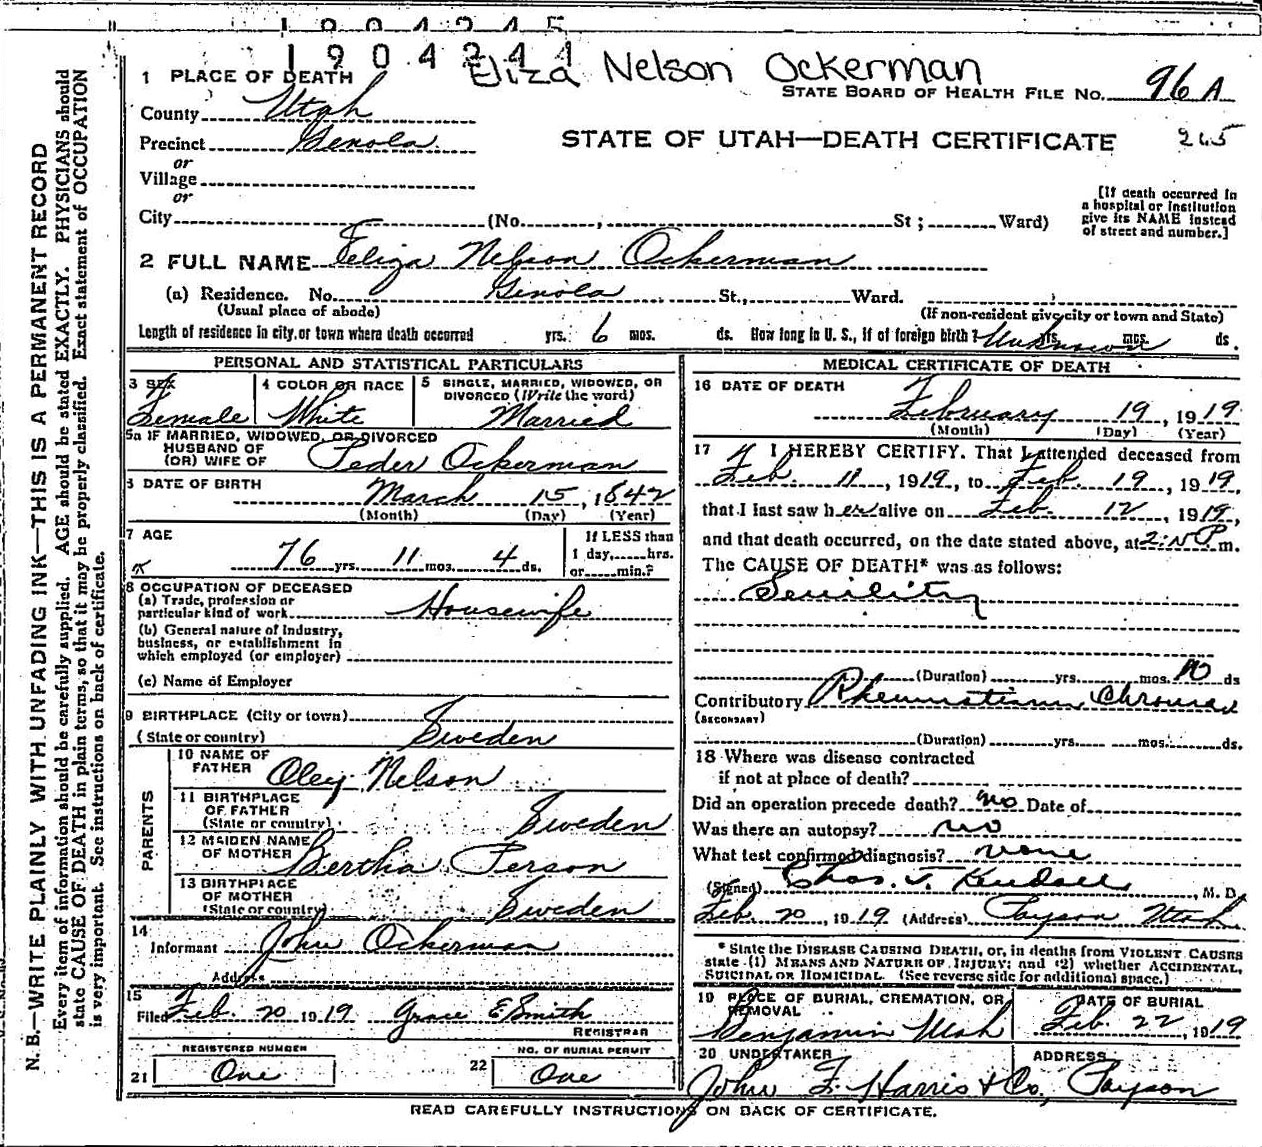 1904245
1904244
Eliza Nelson Ockerman
STATE BOARD OF HEALTH FILE NO. 96 A
265
STATE OF UTAH—DEATH CERTIFICATE
1 PLACE OF DEATH
County Utah
Precinct Genola
or
Village
or
City (No. , St ; Ward)
[If death occurred in
a hospital or institution
give its NAME instead
of street and number.]
2 FULL NAME Eliza Nelson Ockerman
(a) Residence. No. Genola St., Ward.
(Usual place of abode) (If non-resident give city or town and State)
Length of residence in city, or town where death occurred yrs. 6 mos. ds. How long in U. S., if of foreign birth? Unknown yrs. mos. ds.
PERSONAL AND STATISTICAL PARTICULARS
3 SEX
Female
4 COLOR OR RACE
White
5 SINGLE, MARRIED, WIDOWED, OR
DIVORCED (Write the word)
Married
5a IF MARRIED, WIDOWED, OR DIVORCED
HUSBAND OF
(OR) WIFE OF Peder Ockerman
6 DATE OF BIRTH
March 15, 1842
(Month) (Day) (Year)
7 AGE
76 yrs. 11 mos. 4 ds.
If LESS than
1 day, hrs.
or min.?
8 OCCUPATION OF DECEASED
(a) Trade, profession or
particular kind of work Housewife
(b) General nature of industry,
business, or establishment in
which employed (or employer)
(c) Name of Employer
9 BIRTHPLACE (City or town)
(State or country) Sweden
PARENTS
10 NAME OF
FATHER Oley Nelson
11 BIRTHPLACE
OF FATHER
(State or country) Sweden
12 MAIDEN NAME
OF MOTHER Bertha Person
13 BIRTHPLACE
OF MOTHER
(State or country) Sweden
14
Informant John Ockerman
Address
15
Filed Feb. 20 1919 Grace E Smith
REGISTRAR
REGISTERED NUMBER
21 One
NO. OF BURIAL PERMIT
22 One
MEDICAL CERTIFICATE OF DEATH
16 DATE OF DEATH
February 19, 1919
(Month) (Day) (Year)
17 I HEREBY CERTIFY. That I attended deceased from
Feb. 11, 1919, to Feb. 19, 1919,
that I last saw her alive on Feb. 12, 1919,
and that death occurred, on the date stated above, at P. m.
The CAUSE OF DEATH* was as follows:
Senility
(Duration) yrs. mos. 10 ds
Contributory Rheumatism Chronic
(SECONDARY)
(Duration) yrs. mos. ds.
18 Where was disease contracted
if not at place of death?
Did an operation precede death? no Date of
Was there an autopsy? no
What test confirmed diagnosis? none
(Signed) Chas. T. Kendall, M. D.
Feb. 20, 1919 (Address) Payson Utah
* State the DISEASE CAUSING DEATH, or, in deaths from VIOLENT CAUSES
state (1) MEANS AND NATURE OF INJURY; and (2) whether ACCIDENTAL,
SUICIDAL OR HOMICIDAL. (See reverse side for additional space.)
19 PLACE OF BURIAL, CREMATION, OR
REMOVAL
Benjamin Utah
DATE OF BURIAL
Feb. 22, 1919
20 UNDERTAKER
John F. Harris & Co.,
ADDRESS
Payson
READ CAREFULLY INSTRUCTIONS ON BACK OF CERTIFICATE.
N. B.—WRITE PLAINLY WITH UNFADING INK—THIS IS A PERMANENT RECORD
Every item of information should be carefully supplied. AGE should be stated EXACTLY. PHYSICIANS should
state CAUSE OF DEATH in plain terms, so that it may be properly classified. Exact statement of OCCUPATION
is very important. See instructions on back of certificate.